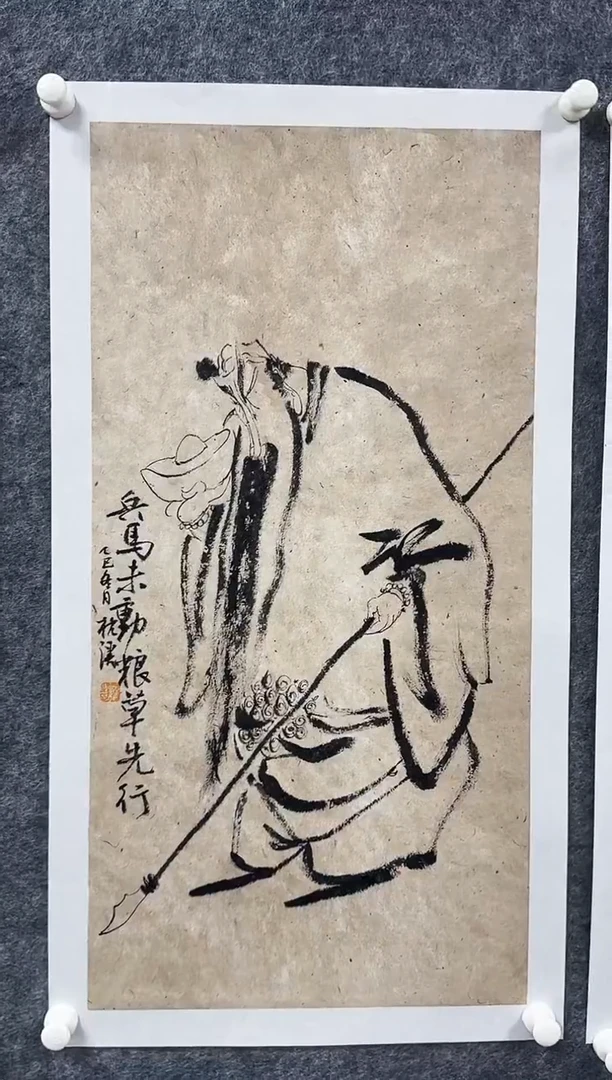 兵馬未動粮草先行
乙巳年冬月